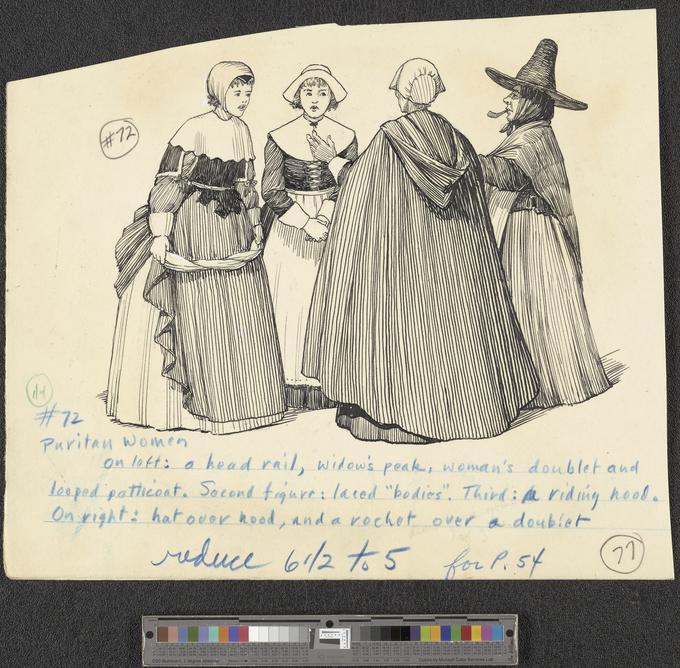 #72
#72
Puritan Women
On left: a head rail, widow's peak, woman's doublet and
looped petticoat. Second figure: laced "bodies". Third: a riding hood.
On right: hat over hood, and a rochet over a doublet
reduce 6 1/2 to 5 for P. 54
77